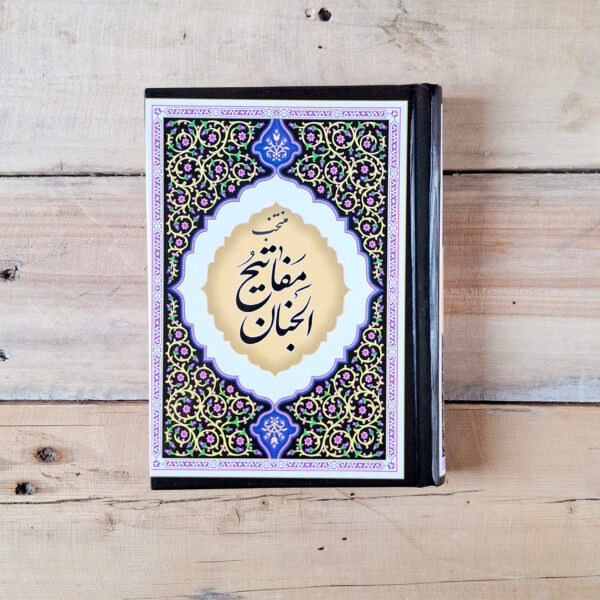 منتخب
مَفاتیحُ
الجَنان